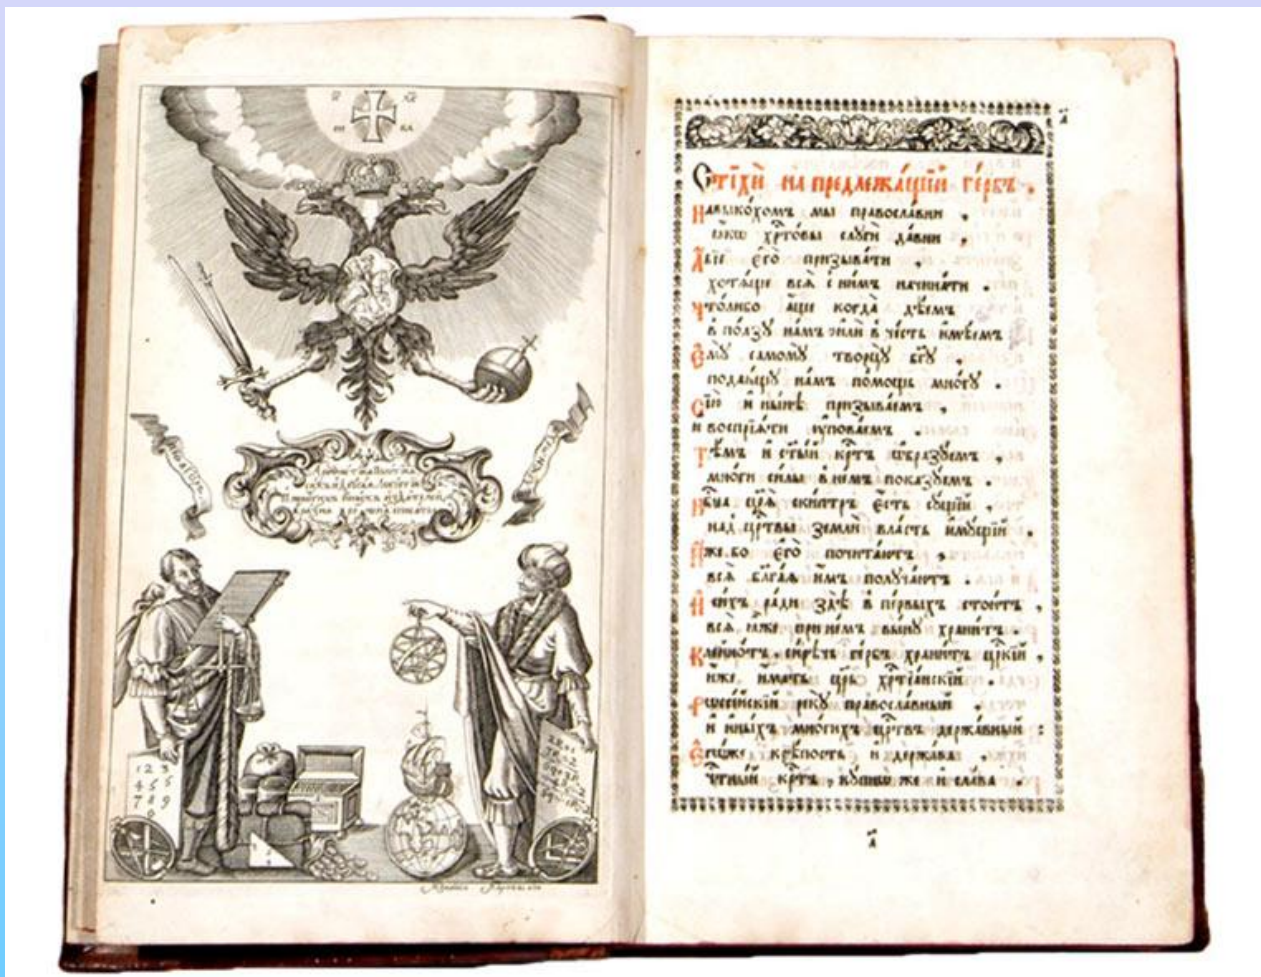 ІС ХС
НИ КА
Арїѳметїка
1 2 3
4 5 6
7 8 9
Стїхѝ на предлежа́щїй ге́рбъ .
Навыко́хомъ мы̀ правосла́внїи ,
ꙗ҆́кѡ хрⷭ҇то́вы слꙋгѝ да́вни ,
А҆́бїе є҆го̀ призыва́ти ,
хотѧ́ще всѧ̑ с ни́мъ начина́ти .
Что́либо а҆́ще когда̀ дѣ́емъ
в по́лзꙋ на́мъ и҆лѝ в че́сть и҆мѣ́емъ
Є҆мꙋ̀ самомꙋ̀ творцꙋ̀ бг҃ꙋ ,
подаю́щꙋ на́мъ по́мощь мно́гꙋ .
Сїѝ и҆ ны́нѣ призыва́емъ ,
и воспрїѧ́ти ᲂу҆пова́емъ .
Тѣ́мъ и҆ ст҃ы́й крⷭ҇тъ ѡ҆бразꙋ́емъ ,
мно́ги си̑лы в не́мъ показꙋ́емъ .
Нб҃на цр҃ѧ̀ ски́птръ є҆́сть сꙋ́щїй ,
над црⷭ҇твы землѝ вла́сть и҆мꙋ́щїй .
И҆̀же бо є҆го̀ почита́ютъ ,
всѧ̑ бл҃га́ѧ и҆̀мъ полꙋча́ютъ .
И҆ си́хъ ра́ди здѣ̀ в пе́рвыхъ стои́тъ ,
всѧ̑ ꙗ҆̀же при не́мъ вы́нꙋ храни́тъ .
Клейно́тъ си́рѣчь ге́рбъ храни́тъ цр҃кїй ,
и҆́же и҆́мать цр҃ь хрⷭ҇тїа́нскїй .
Рѡссі́йскїй рекꙋ̀ правосла́вный
и҆ и҆́ныхъ мно́гихъ црⷭ҇твъ держа́вный :
Є҆мꙋ́же крѣ́пость и҆ держа́ва
чтⷭ҇ны́й крⷭ҇тъ , кꙋ́пнѡ же и҆ сла́ва .